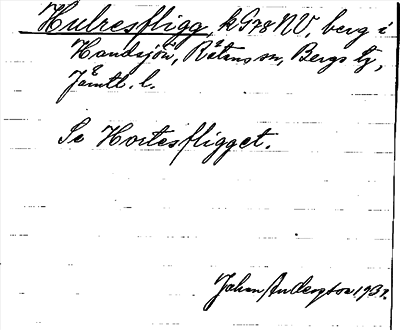 Hulresfligg, k G78 NV, berg i
Handsjön, Rätans sn, Bergs tg,
Jämtl. l.
Se Hortesfligget.
Johan Anderson 193